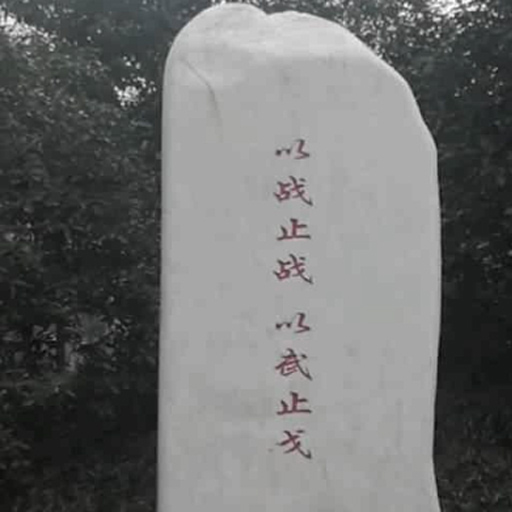 以战止战 以武止戈